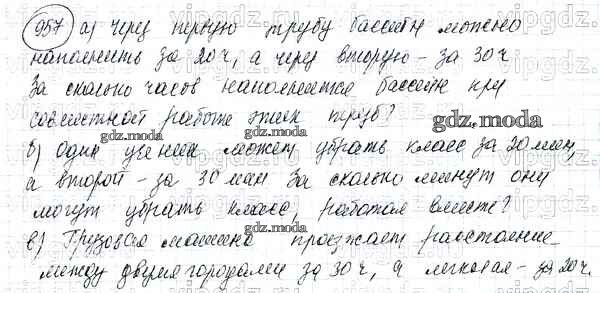 957 а) Через первую трубу бассейн можно
наполнить за 20 ч, а через вторую - за 30 ч
За сколько часов наполнится бассейн при
совместной работе этих труб?
gdz.moda gdz.moda gdz.moda
б) Один ученик может убрать класс за 20 мин,
а второй - за 30 мин. За сколько минут они
могут убрать класс, работая вместе?
gdz.moda gdz.moda
в) Грузовая машина проезжает расстояние
между двумя городами за 30 ч, а легковая - за 20 ч.